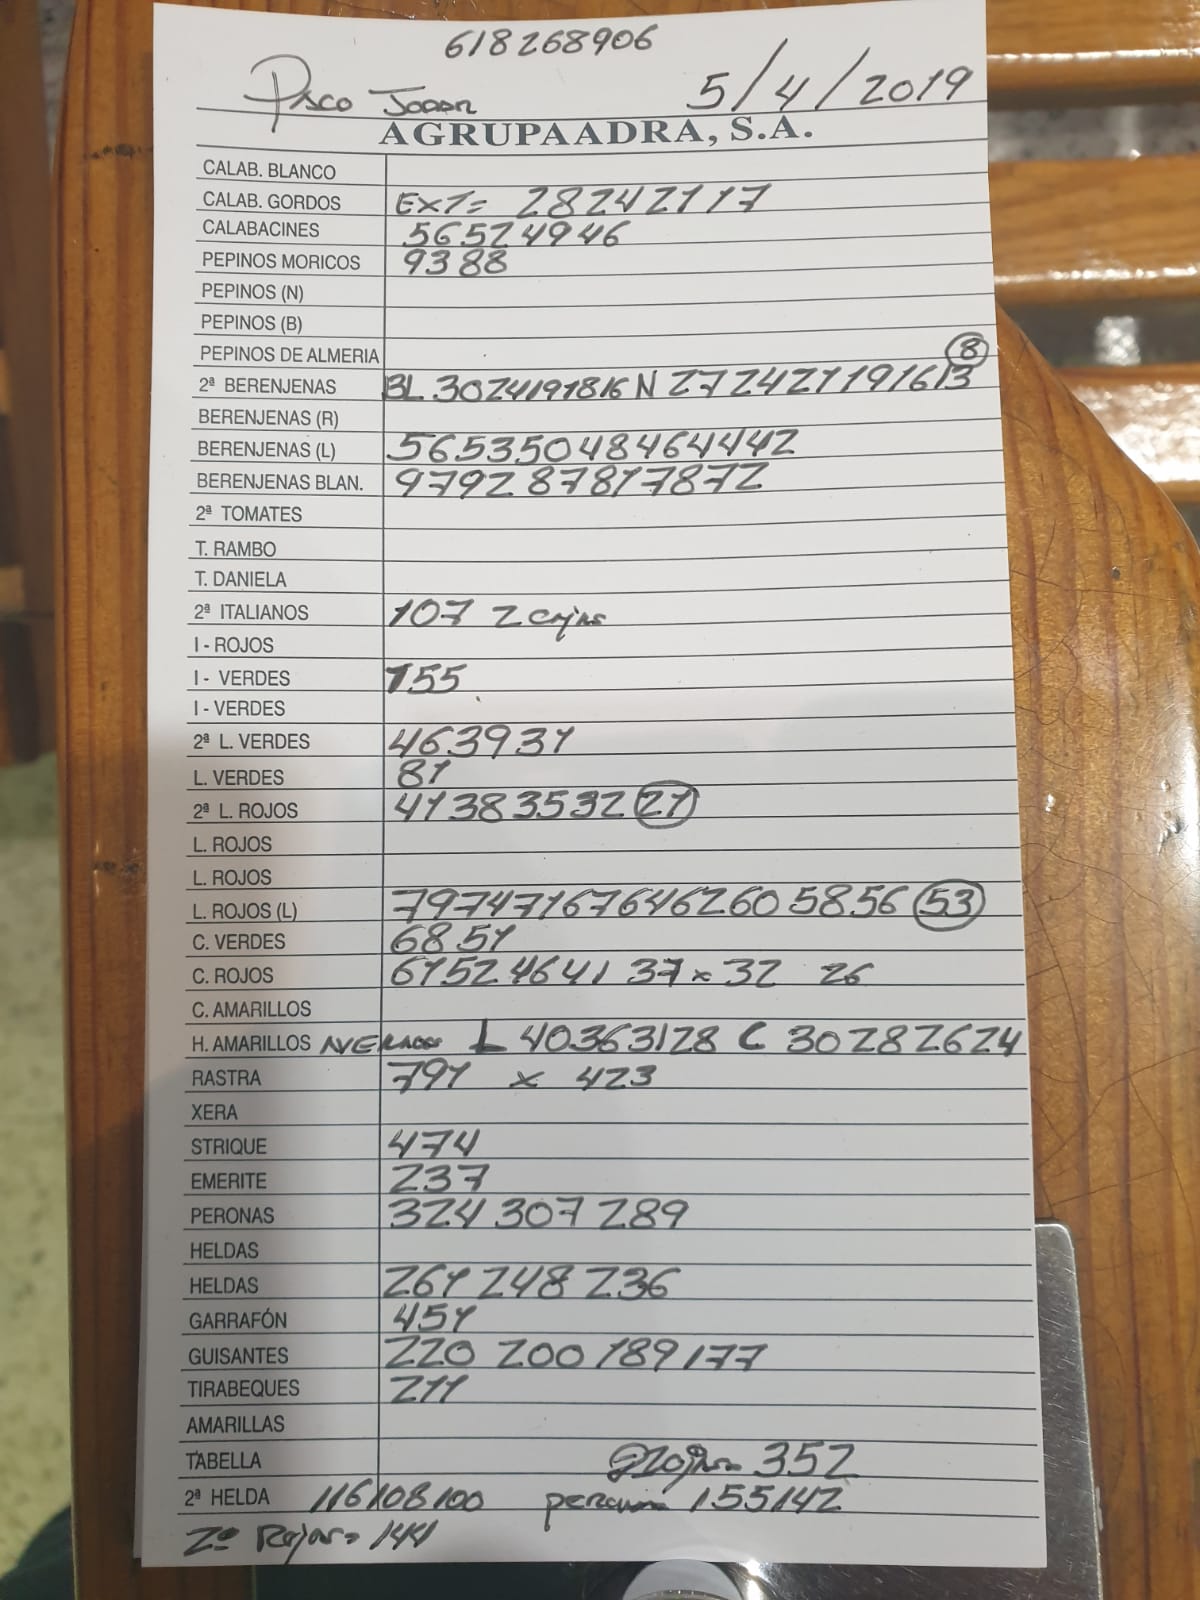 618268906
Paco Joaar 5/4/2019
AGRUPAADRA, S.A.
CALAB. BLANCO
CALAB. GORDOS EXT= 28242117
CALABACINES 56524946
PEPINOS MORICOS 9388
PEPINOS (N)
PEPINOS (B)
PEPINOS DE ALMERIA 8
2ª BERENJENAS BL. 3024191816 N 272421191613
BERENJENAS (R)
BERENJENAS (L) 56535048464442
BERENJENAS BLAN. 979287817872
2ª TOMATES
T. RAMBO
T. DANIELA
2ª ITALIANOS 107 2 cajas
I - ROJOS
I - VERDES 155
I - VERDES
2ª L. VERDES 463931
L. VERDES 81
2ª L. ROJOS 41383532 21
L. ROJOS
L. ROJOS
L. ROJOS (L) 797471676462605856 53
C. VERDES 6851
C. ROJOS 61524641 37 x 32 26
C. AMARILLOS
H. AMARILLOS L 40363128 C 30282624
RASTRA 791 x 423
XERA
STRIQUE 474
EMERITE 237
PERONAS 324 307 289
HELDAS
HELDAS 261 248 236
GARRAFÓN 451
GUISANTES 220 200 189 177
TIRABEQUES 211
AMARILLAS
TABELLA 352
2ª HELDA 116108100 155142
2ª Rojas = 144